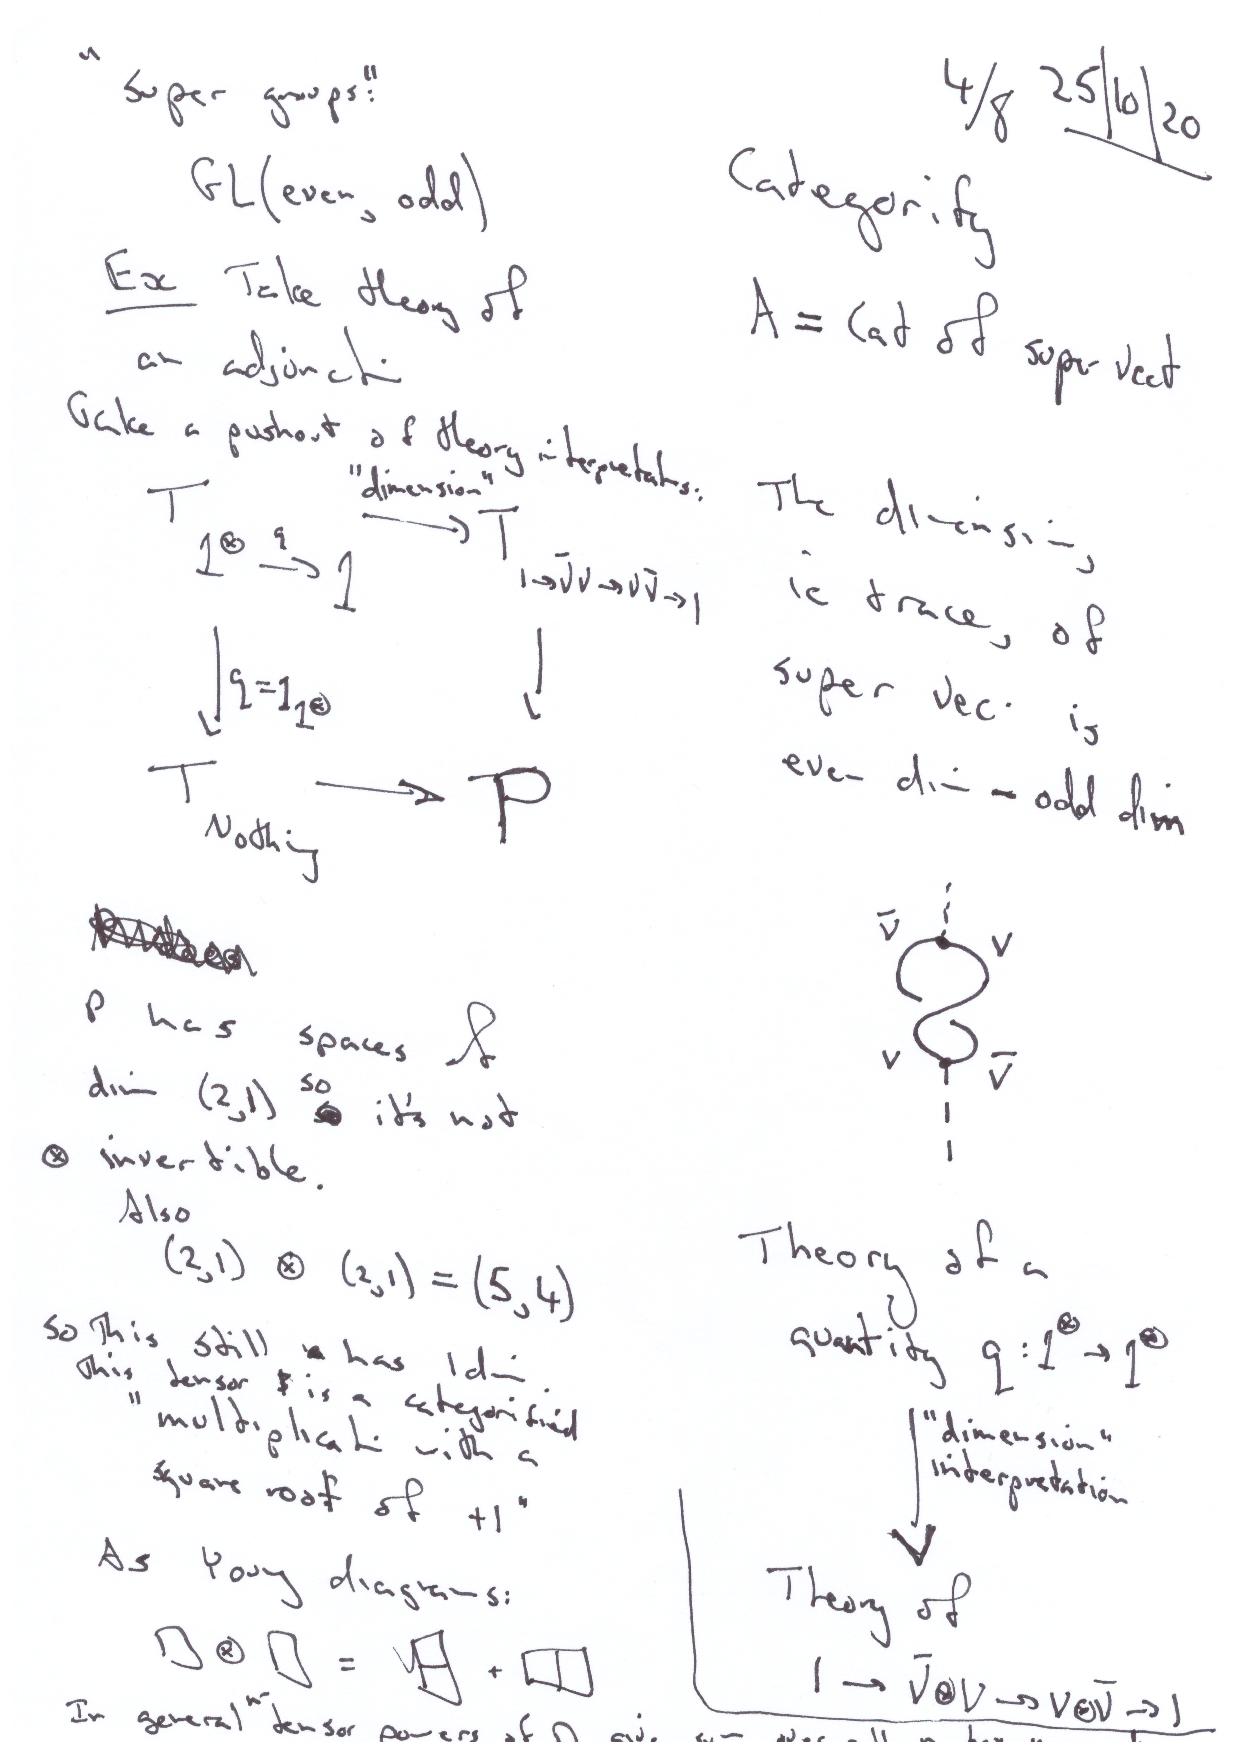 "Super groups":
GL(even, odd)
Ex Take theory of
an adjuncti
Take a pushout of theory interpretats:
T 1⊗ →q 1 "dimension" → T 1→V̄V→VV̄→1
↓ q=1 1⊗ ↓
T Nothing → P
P has spaces of
dim (2,1) so it's not
⊗ invertible.
Also
(2,1) ⊗ (2,1) = (5,4)
So This still has 1 di
this tensor is a categorified
"multiplicati with a
square root of +1"
As Young diagrams:
▯ ⊗ ▯ = + 
In general tensor powers of
4/8 25/10/20
Categorify
A = Cat of super Vect
The dimension,
ie trace, of
super vec. is
even dim - odd dim
V̄ V
V V̄
Theory of a
quantity q : 1⊗ → 1⊗
"dimension"
interpretation
Theory of
1 → V̄⊗V → V⊗V̄ → 1